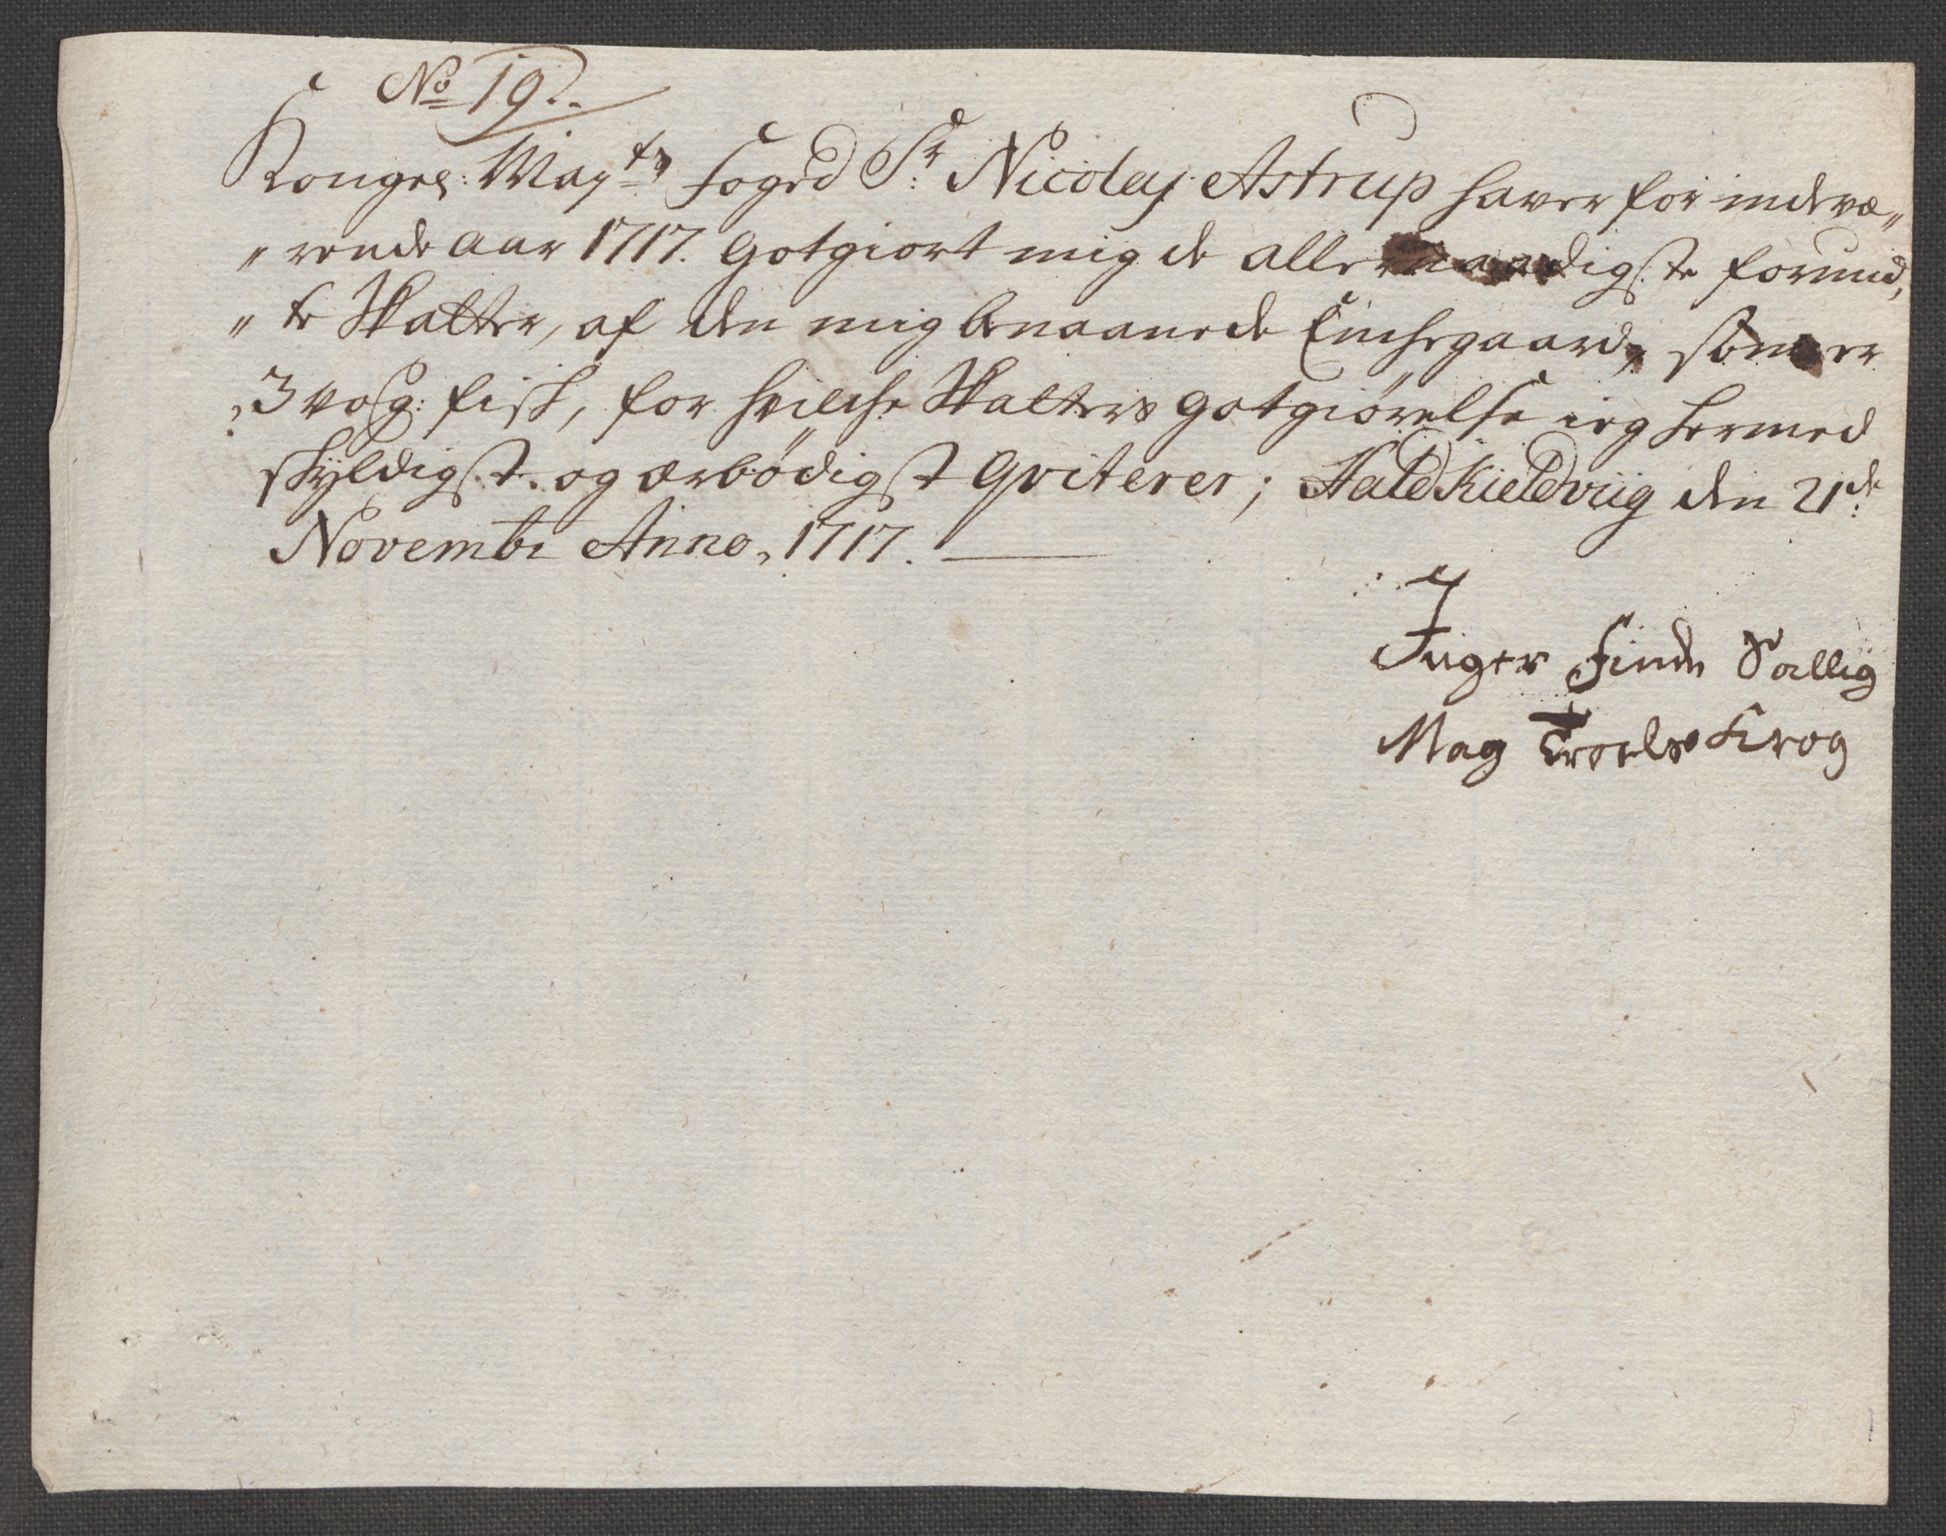 No 19.
Kongel: Mayts foged Sr Nicolaj Astrup haver for indevæ„
„rende aar 1717. Gotgiort mig de allernaadigste forund„
„te Skatter, af den mig benaanede Enchegaard, som er
3 vog: fisk, for hvilche Skatters gotgiørelse ieg hermed
skyldigst og ærbødigst Qviterer; Hald Kieldviig den 21de
Novembr Anno, 1717.
Inger Finde Sallig
Mag Troels Krog